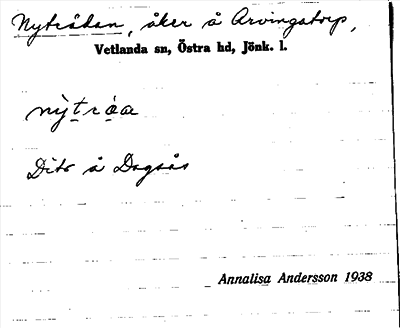 Nyträdan, åker å Arvingatorp,
Vetlanda sn, Östra hd, Jönk. l.
nỳtråa
Dito å Dagsås
Annalisa Andersson 1938